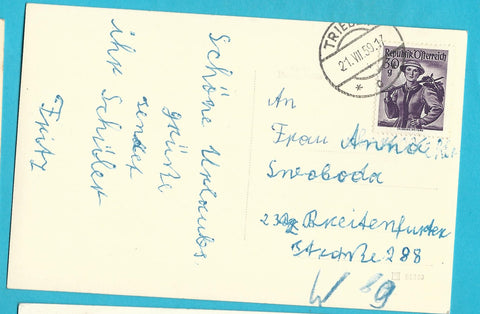 Schöne Urlaubs
grüße
sendet
ihr Schüler
Fritz
TRIEB
21.VII.50.17
Republik Österreich
30
g
An
Frau Anna
Swoboda
Breitenfurter
Straße 288
W 89